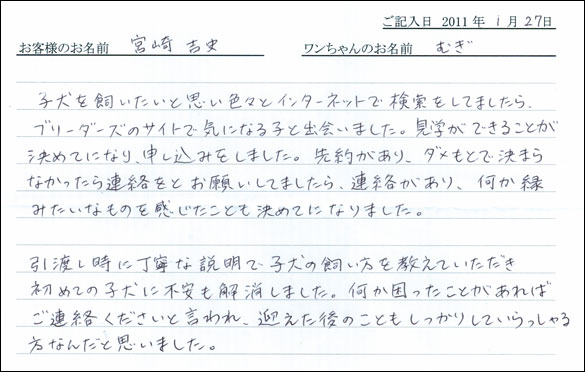 ご記入日 2011年 1月 27日
お客様のお名前 宮崎 吉史 ワンちゃんのお名前 むぎ
子犬を飼いたいと思い色々とインターネットで検索をしてましたら、
ブリーダーズのサイトで気になる子と出会いました。見学ができることが
決めてになり、申し込みをしました。先約があり、ダメもとで決まら
なかったら連絡をとお願いしてましたら、連絡があり、何か縁
みたいなものを感じたことも決めてになりました。
引渡し時に丁寧な説明で子犬の飼い方を教えていただき
初めての子犬に不安も解消しました。何か困ったことがあれば
ご連絡くださいと言われ、迎えた後のこともしっかりしていらっしゃる
方なんだと思いました。